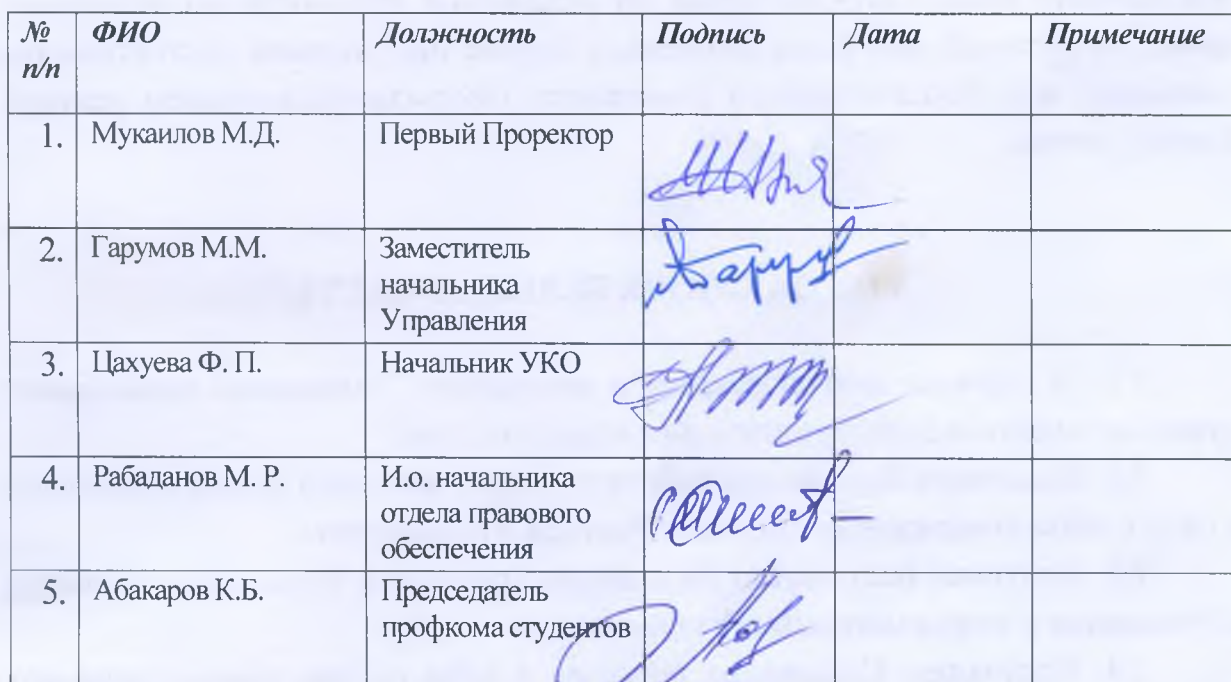 № ФИО Должность Подпись Дата Примечание
п/п
1. Мукаилов М.Д. Первый Проректор
2. Гарумов М.М. Заместитель
начальника
Управления
3. Цахуева Ф. П. Начальник УКО
4. Рабаданов М. Р. И.о. начальника
отдела правового
обеспечения
5. Абакаров К.Б. Председатель
профкома студентов